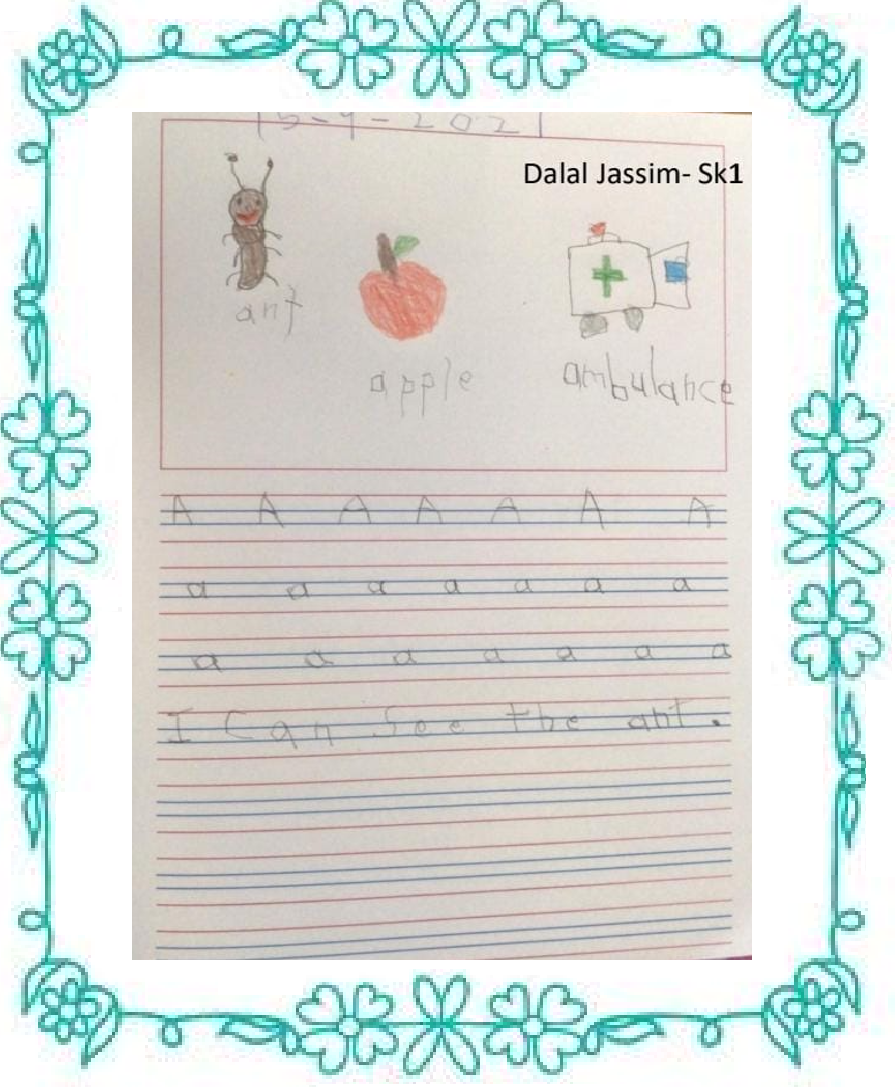 15-9-2021
Dalal Jassim- Sk1
ant
apple
ambulance
A A A A A A A
a a a a a a a
a a a a a a a
I Can See the ant.